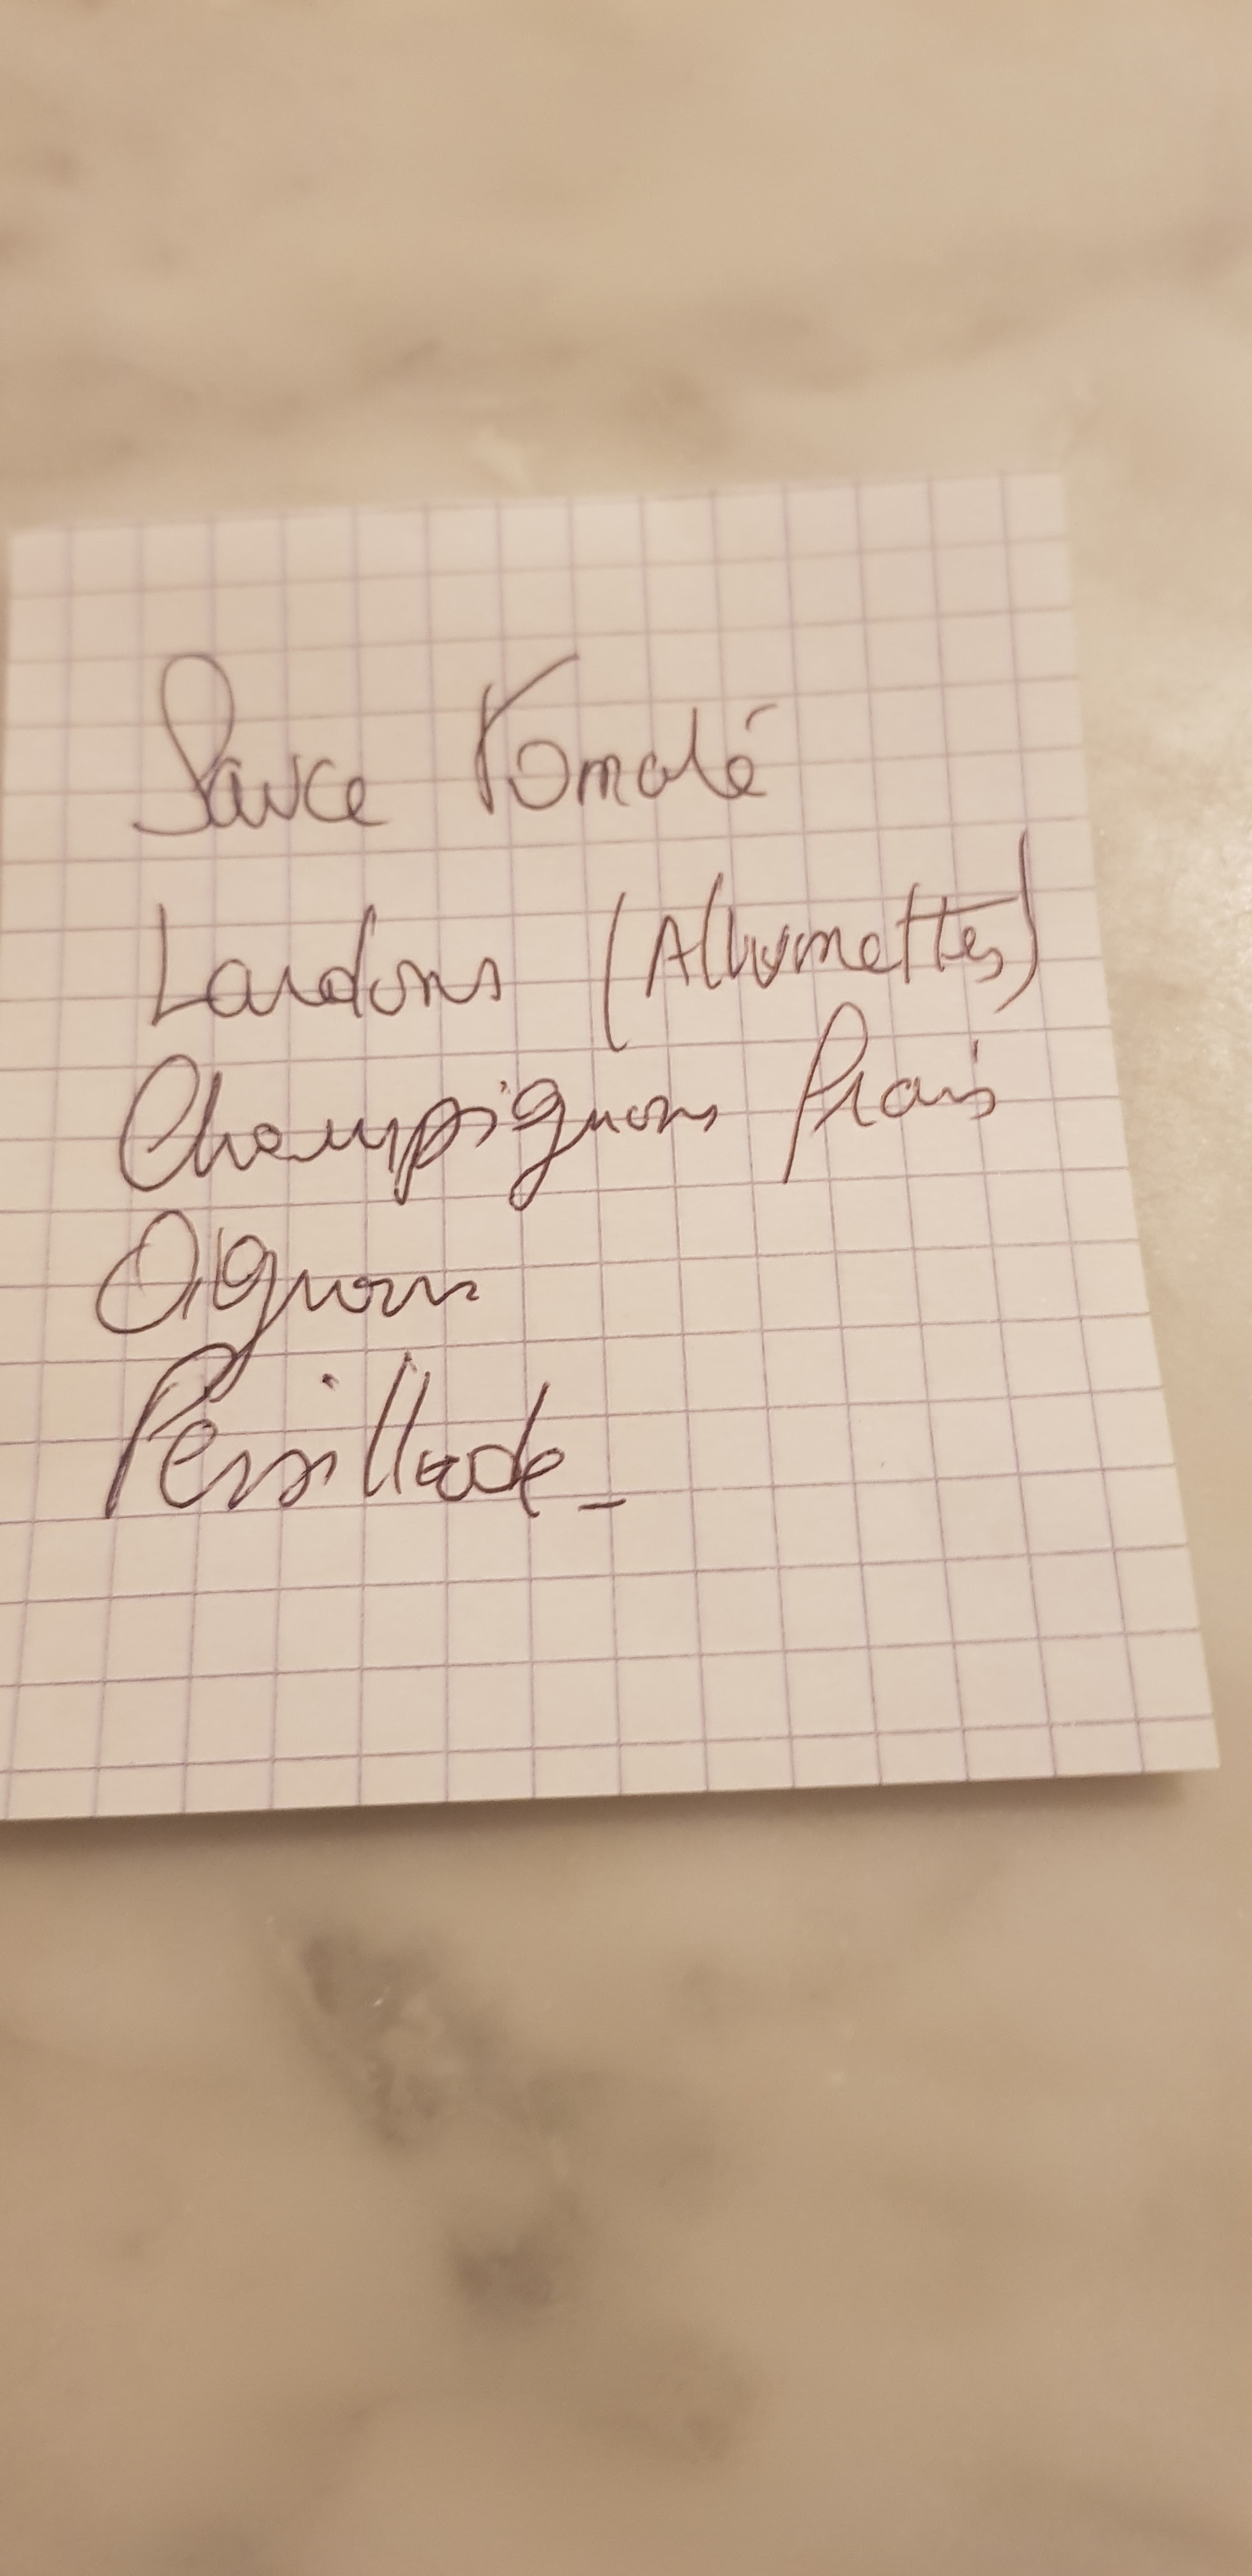 Sauce Tomate
Lardons (Allumettes)
Champignons frais
Oignons
Persillade_